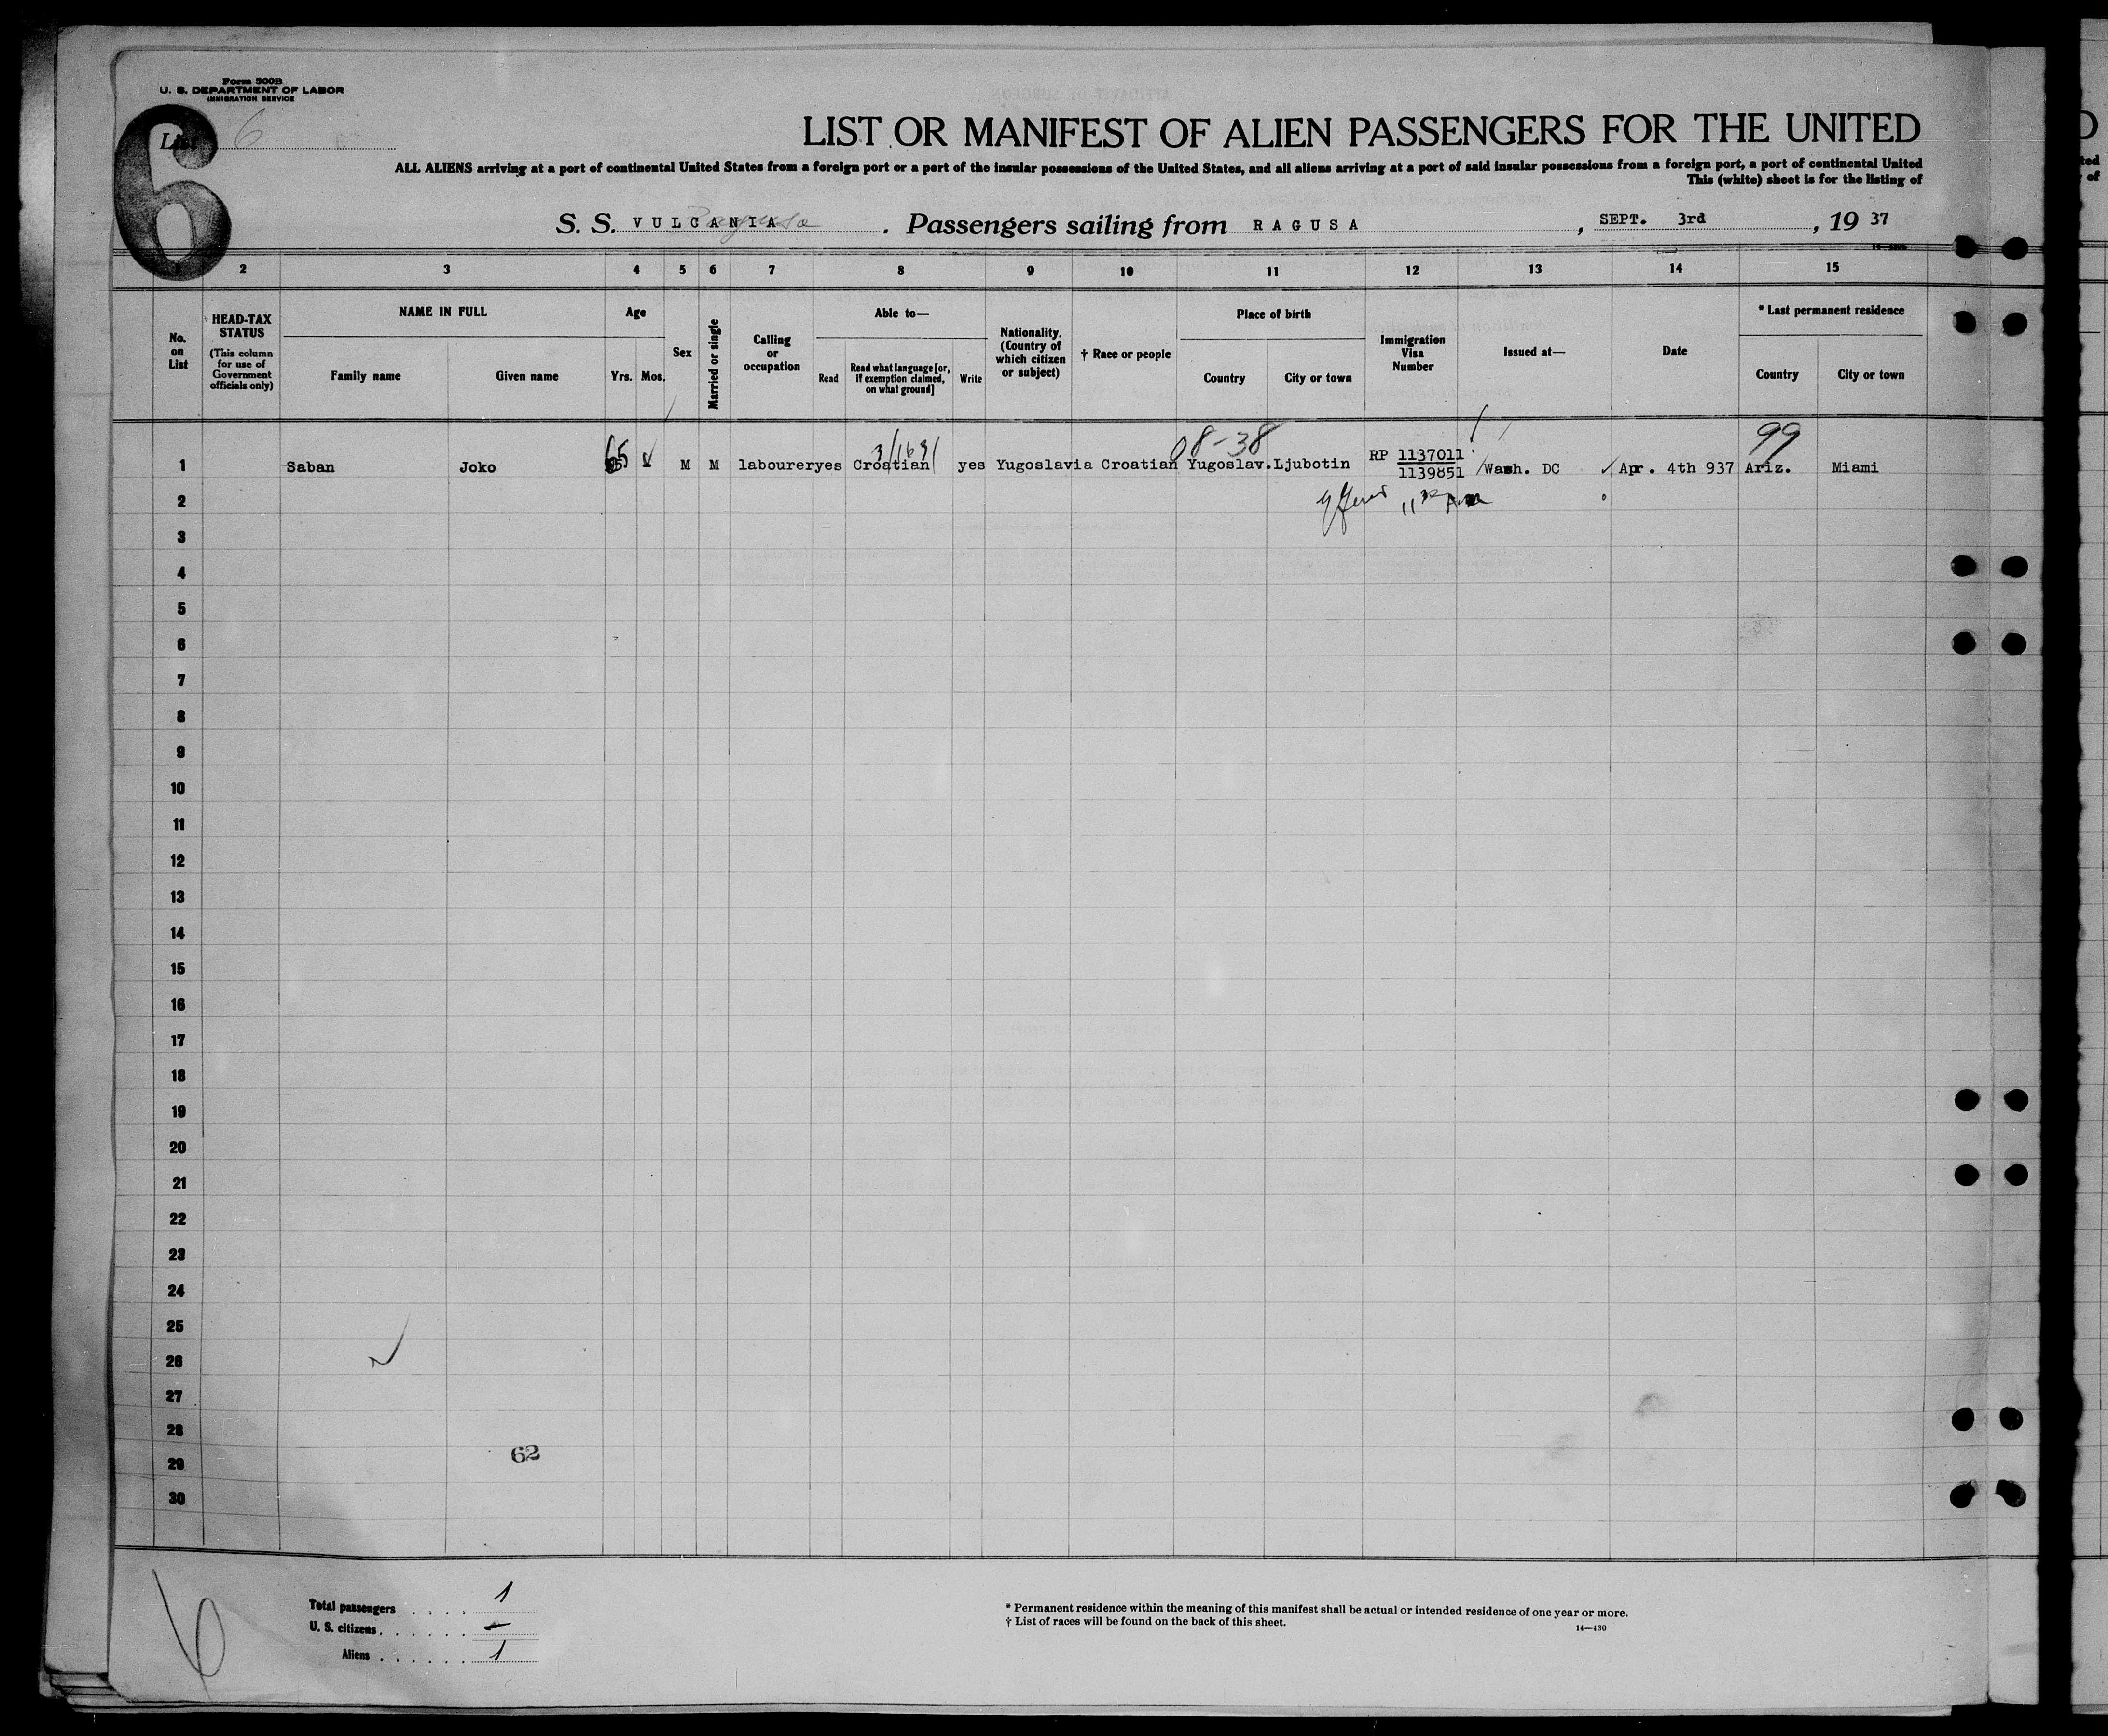 Form 500B
U. S. DEPARTMENT OF LABOR
IMMIGRATION SERVICE
6
List 6
LIST OR MANIFEST OF ALIEN PASSENGERS FOR THE UNITED
ALL ALIENS arriving at a port of continental United States from a foreign port or a port of the insular possessions of the United States, and all aliens arriving at a port of said insular possessions from a foreign port, a port of continental United
This (white) sheet is for the listing of
S. S. VULCANIA . Passengers sailing from RAGUSA , SEPT. 3rd , 19 37
2 3 4 5 6 7 8 9 10 11 12 13 14 15
No. on List
HEAD-TAX STATUS (This column for use of Government officials only)
NAME IN FULL
Family name
Given name
Age
Yrs. Mos.
Sex
Married or single
Calling or occupation
Able to—
Read
Read what language [or, if exemption claimed, on what ground]
Write
Nationality. (Country of which citizen or subject)
† Race or people
Place of birth
Country
City or town
Immigration Visa Number
Issued at—
Date
* Last permanent residence
Country
City or town
08-38
99
1 Saban Joko 65 M M labourer yes Croatian yes Yugoslavia Croatian Yugoslav. Ljubotin RP 1137011 1139851 Wash. DC Apr. 4th 937 Ariz. Miami
2
3
4
5
6
7
8
9
10
11
12
13
14
15
16
17
18
19
20
21
22
23
24
25
26
27
28
62
29
30
6
Total passengers . . . . 1
U. S. citizens . . . . . . –
Aliens . . . . . . 1
* Permanent residence within the meaning of this manifest shall be actual or intended residence of one year or more.
† List of races will be found on the back of this sheet.
14—430